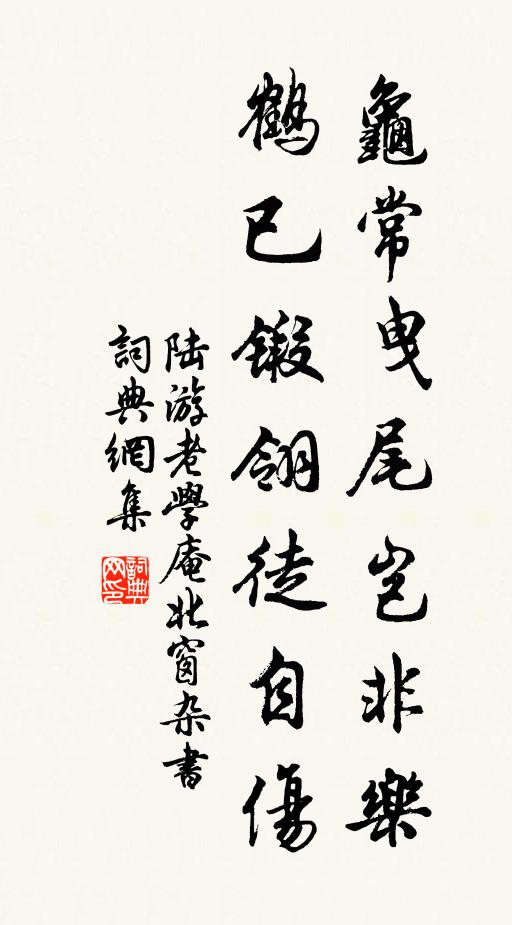 龜常曳尾岂非樂
鶴已鎩翎徒自傷
陆游老學庵北窗杂書
詞典網集
詞典
网印